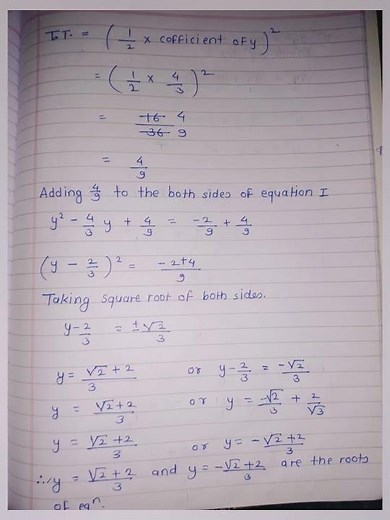 T.T. = (1/2 × cofficient of y)²
= (1/2 × 4/3)²
= 16/36 4/9
= 4/9
Adding 4/9 to the both sides of equation I
y² - 4/3 y + 4/9 = -2/9 + 4/9
(y - 2/3)² = -2+4/9
Taking square root of both sides.
y-2/3 = ±√2/3
y = √2+2/3 or y-2/3 = -√2/3
y = √2+2/3 or y = -√2/3 + 2/√3
y = √2+2/3 or y = -√2+2/3
∴ y = √2+2/3 and y = -√2+2/3 are the roots
of eqⁿ.